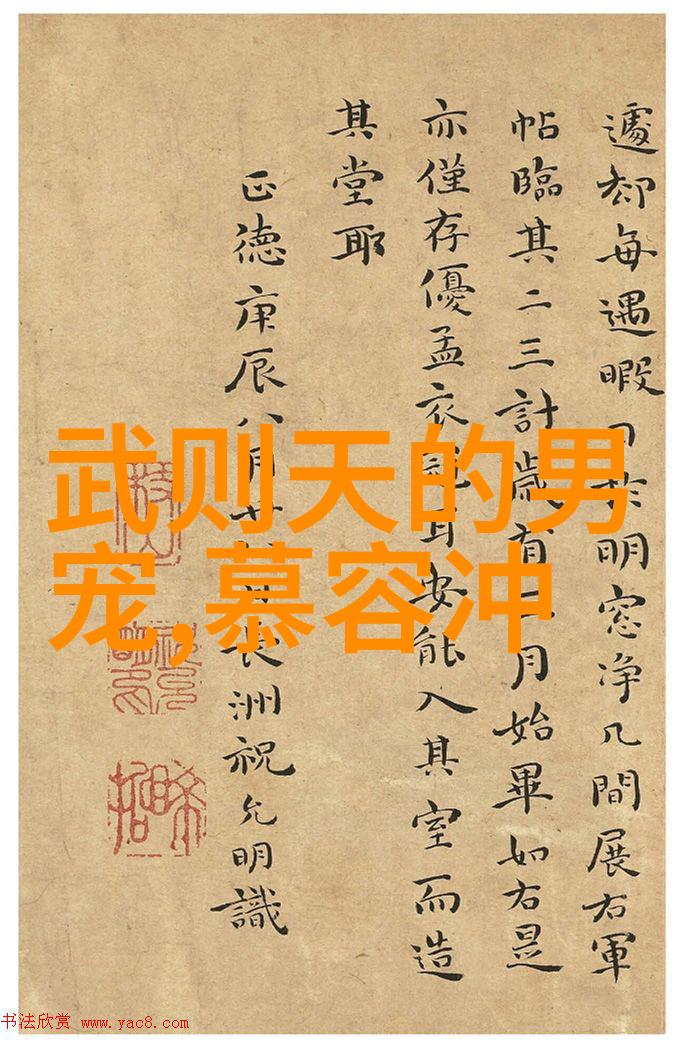 遽却每遇暇日於明窓净几間展右軍
帖臨其二三計歲有二月始畢如右是
亦僅存優孟衣冠耳安能入其室而造
其堂耶
正德庚辰八月廿日長洲祝允明識
武则天的男
宠,慕容冲
书法欣赏 www.yac8.com